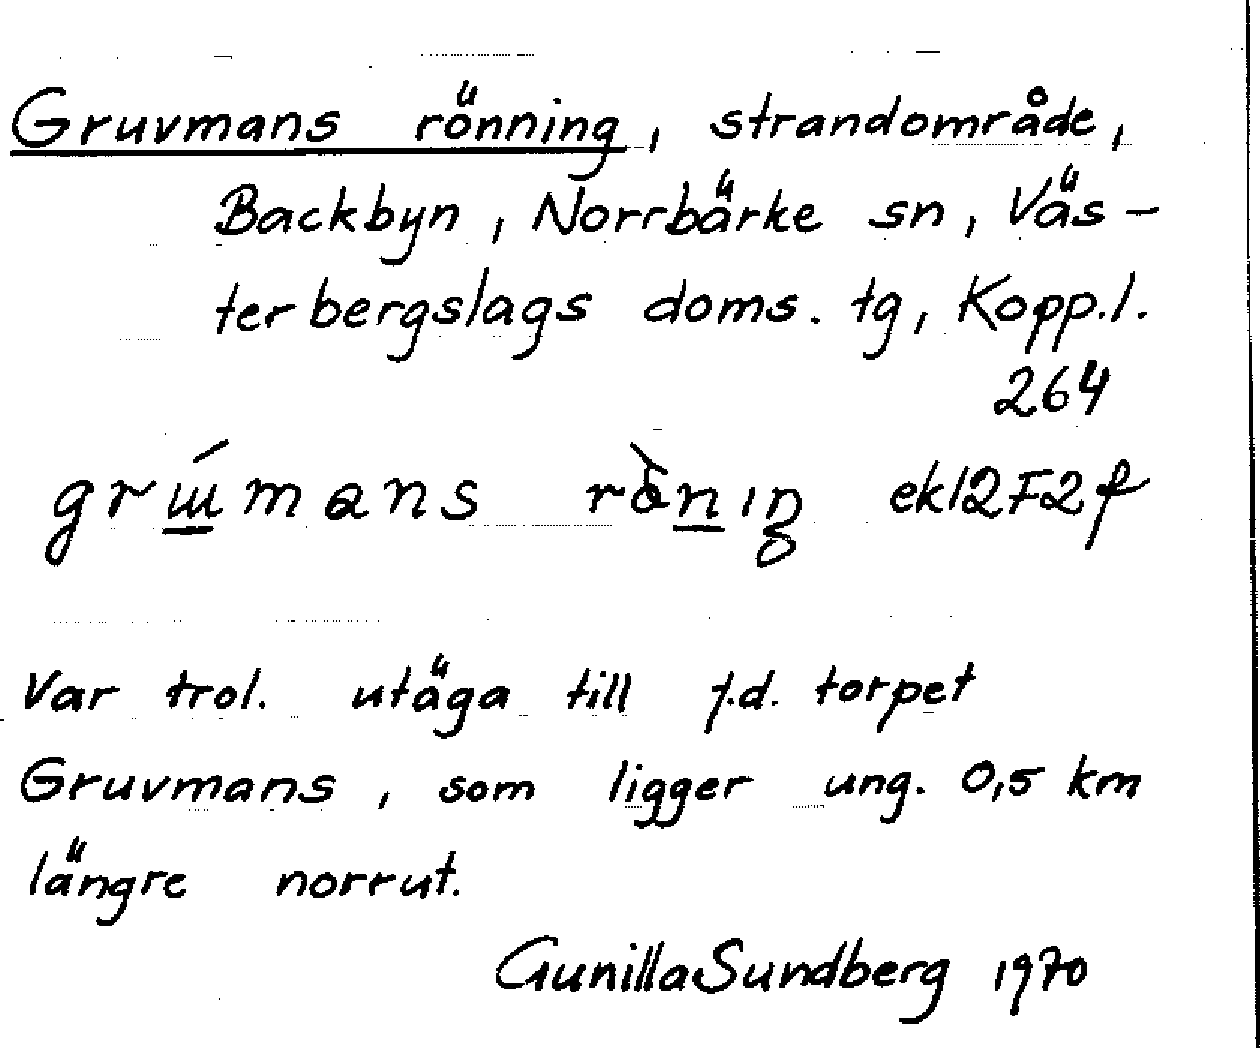 Gruvmans rönning, strandområde,
Backbyn, Norrbärke sn, Väs-
terbergslags doms. tg, Kopp.l.
264
grɯ́mans rò̀nıŋ ekl2F2f
Var trol. utäga till f.d. torpet
Gruvmans, som ligger ung. 0,5 km
längre norrut.
Gunilla Sundberg 1970